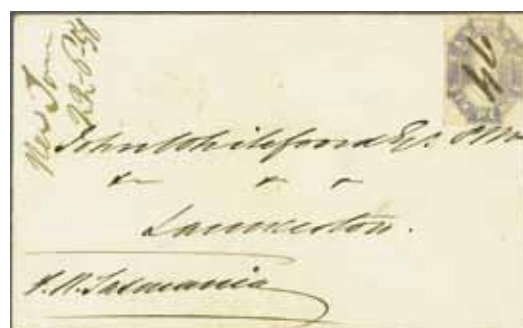 New Town
22-6-
John Whitefoord Esq. P.M.
Launceston.
Tasmania